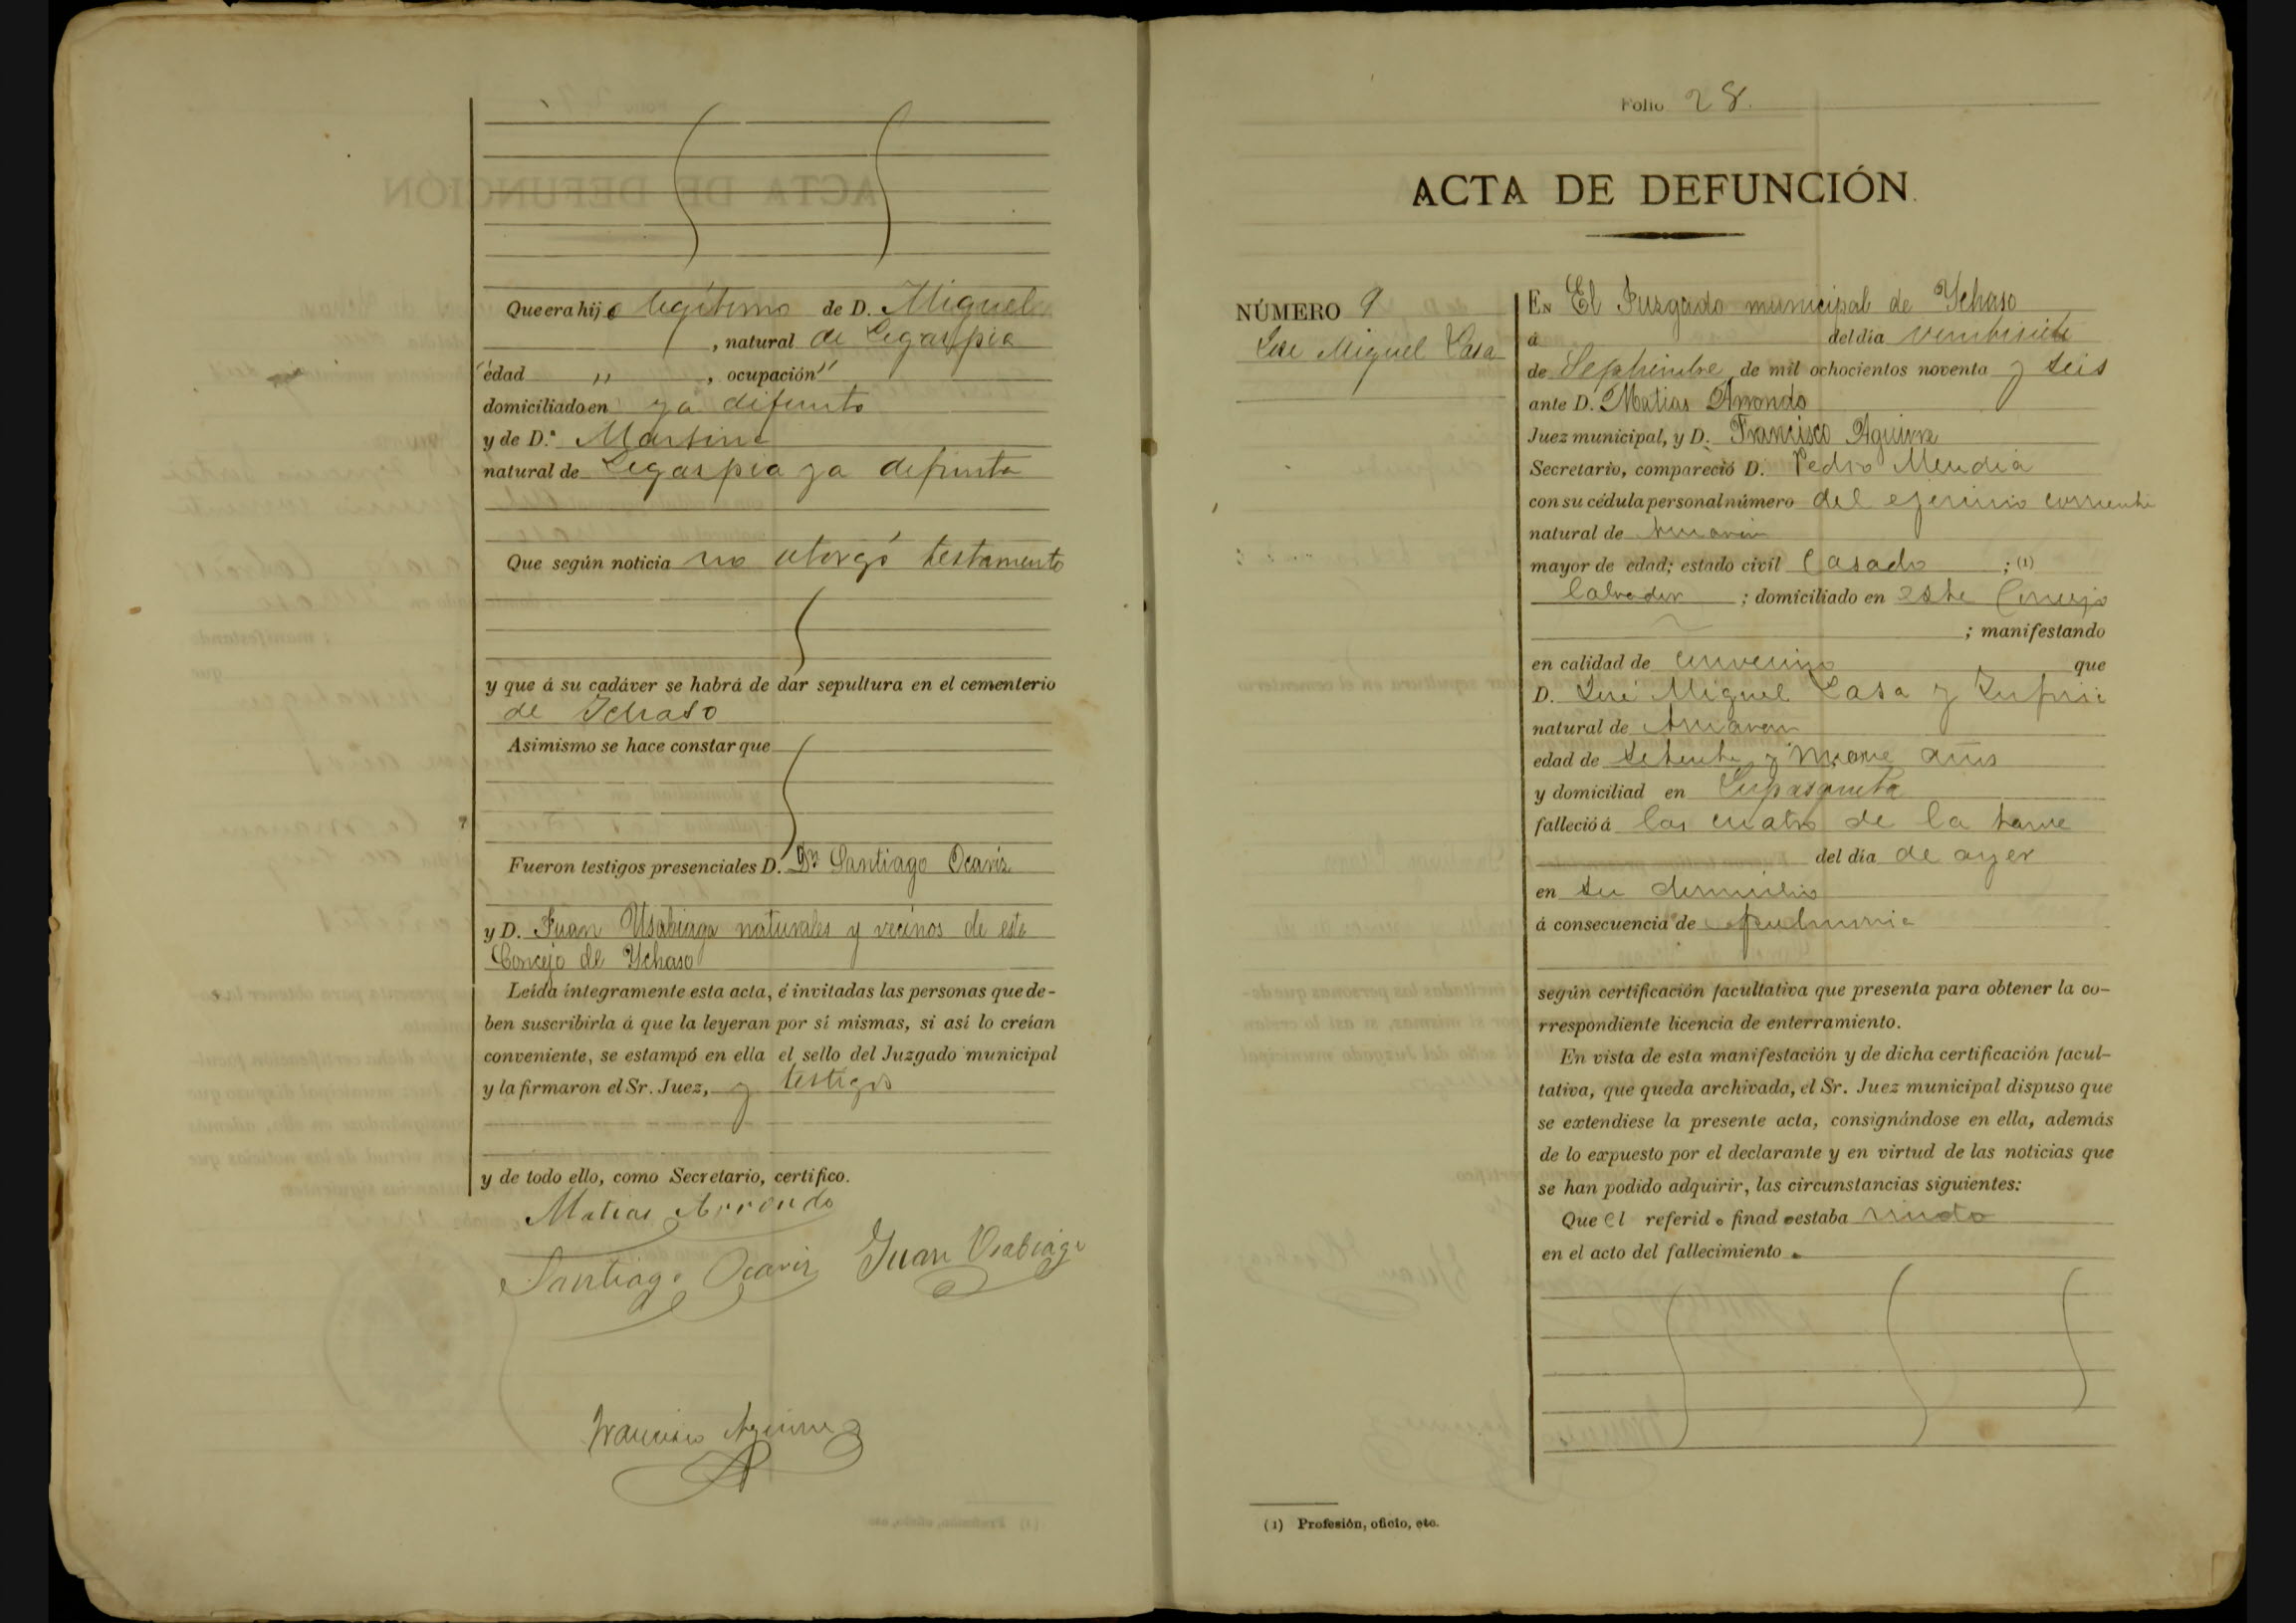 Que era hijo legítimo de D. Miguel
, natural de Legaspia
edad " , ocupación "
domiciliado en ya difunto
y de D.ª Martina
natural de Legaspia ya difunta
Que según noticia no otorgó testamento
y que á su cadáver se habrá de dar sepultura en el cementerio
de Ichaso
Asimismo se hace constar que
Fueron testigos presenciales D. Dn Santiago Ocariz
y D. Juan Usabiaga naturales y vecinos de este
Concejo de Ychaso
Leída íntegramente esta acta, é invitadas las personas que de-
ben suscribirla á que la leyeran por sí mismas, si así lo creían
conveniente, se estampó en ella el sello del Juzgado municipal
y la firmaron el Sr. Juez, y testigos
y de todo ello, como Secretario, certifico.
Matias Arrondo
Santiago Ocariz Juan Usabiaga
Francisco Aguirre
Folio 28.
ACTA DE DEFUNCIÓN.
NÚMERO 9
José Miguel Lasa
EN El Juzgado municipal de Ychaso
á del día veintisiete
de Septiembre de mil ochocientos noventa y seis
ante D. Matias Arrondo
Juez municipal, y D. Francisco Aguirre
Secretario, compareció D. Pedro Mendia
con su cédula personal número del ejercicio corriente
natural de
mayor de edad; estado civil Casado ; (1)
Labrador ; domiciliado en este Concejo
; manifestando
en calidad de convecino que
D. José Miguel Lasa y
natural de
edad de setenta y nueve años
y domiciliad en
falleció á las cuatro de la tarde
del día de ayer
en su domicilio
á consecuencia de pulmonia
según certificación facultativa que presenta para obtener la co-
rrespondiente licencia de enterramiento.
En vista de esta manifestación y de dicha certificación facul-
tativa, que queda archivada, el Sr. Juez municipal dispuso que
se extendiese la presente acta, consignándose en ella, además
de lo expuesto por el declarante y en virtud de las noticias que
se han podido adquirir, las circunstancias siguientes:
Que el referido finado estaba viudo
en el acto del fallecimiento
(1) Profesión, oficio, etc.